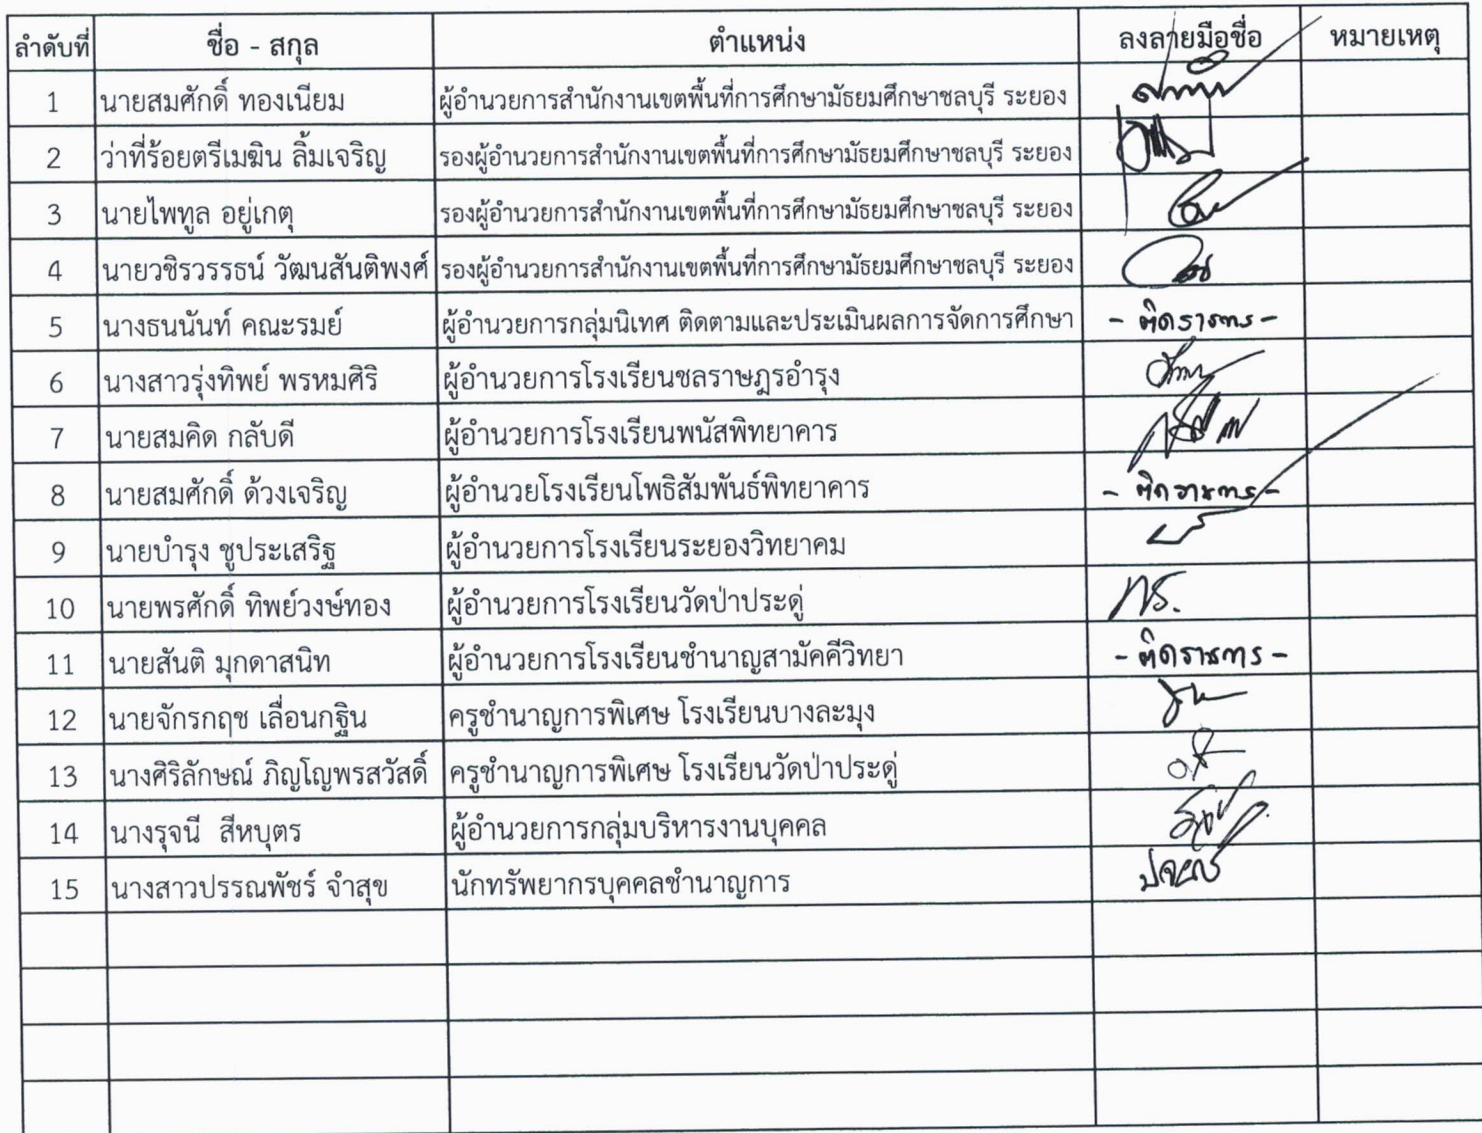 ลำดับที่ ชื่อ - สกุล ตำแหน่ง ลงลายมือชื่อ หมายเหตุ
1 นายสมศักดิ์ ทองเนียม ผู้อำนวยการสำนักงานเขตพื้นที่การศึกษามัธยมศึกษาชลบุรี ระยอง
2 ว่าที่ร้อยตรีเมฆิน ลิ้มเจริญ รองผู้อำนวยการสำนักงานเขตพื้นที่การศึกษามัธยมศึกษาชลบุรี ระยอง
3 นายไพทูล อยู่เกตุ รองผู้อำนวยการสำนักงานเขตพื้นที่การศึกษามัธยมศึกษาชลบุรี ระยอง
4 นายวชิรวรรธน์ วัฒนสันติพงศ์ รองผู้อำนวยการสำนักงานเขตพื้นที่การศึกษามัธยมศึกษาชลบุรี ระยอง
5 นางธนนันท์ คณะรมย์ ผู้อำนวยการกลุ่มนิเทศ ติดตามและประเมินผลการจัดการศึกษา - ติดราชการ -
6 นางสาวรุ่งทิพย์ พรหมศิริ ผู้อำนวยการโรงเรียนชลราษฎรอำรุง
7 นายสมคิด กลับดี ผู้อำนวยการโรงเรียนพนัสพิทยาคาร
8 นายสมศักดิ์ ด้วงเจริญ ผู้อำนวยโรงเรียนโพธิสัมพันธ์พิทยาคาร - ติดราชการ -
9 นายบำรุง ชูประเสริฐ ผู้อำนวยการโรงเรียนระยองวิทยาคม
10 นายพรศักดิ์ ทิพย์วงษ์ทอง ผู้อำนวยการโรงเรียนวัดป่าประดู่
11 นายสันติ มุกดาสนิท ผู้อำนวยการโรงเรียนชำนาญสามัคคีวิทยา - ติดราชการ -
12 นายจักรกฤช เลื่อนกฐิน ครูชำนาญการพิเศษ โรงเรียนบางละมุง
13 นางศิริลักษณ์ ภิญโญพรสวัสดิ์ ครูชำนาญการพิเศษ โรงเรียนวัดป่าประดู่
14 นางรุจนี สีหบุตร ผู้อำนวยการกลุ่มบริหารงานบุคคล
15 นางสาวปรรณพัชร์ จำสุข นักทรัพยากรบุคคลชำนาญการ